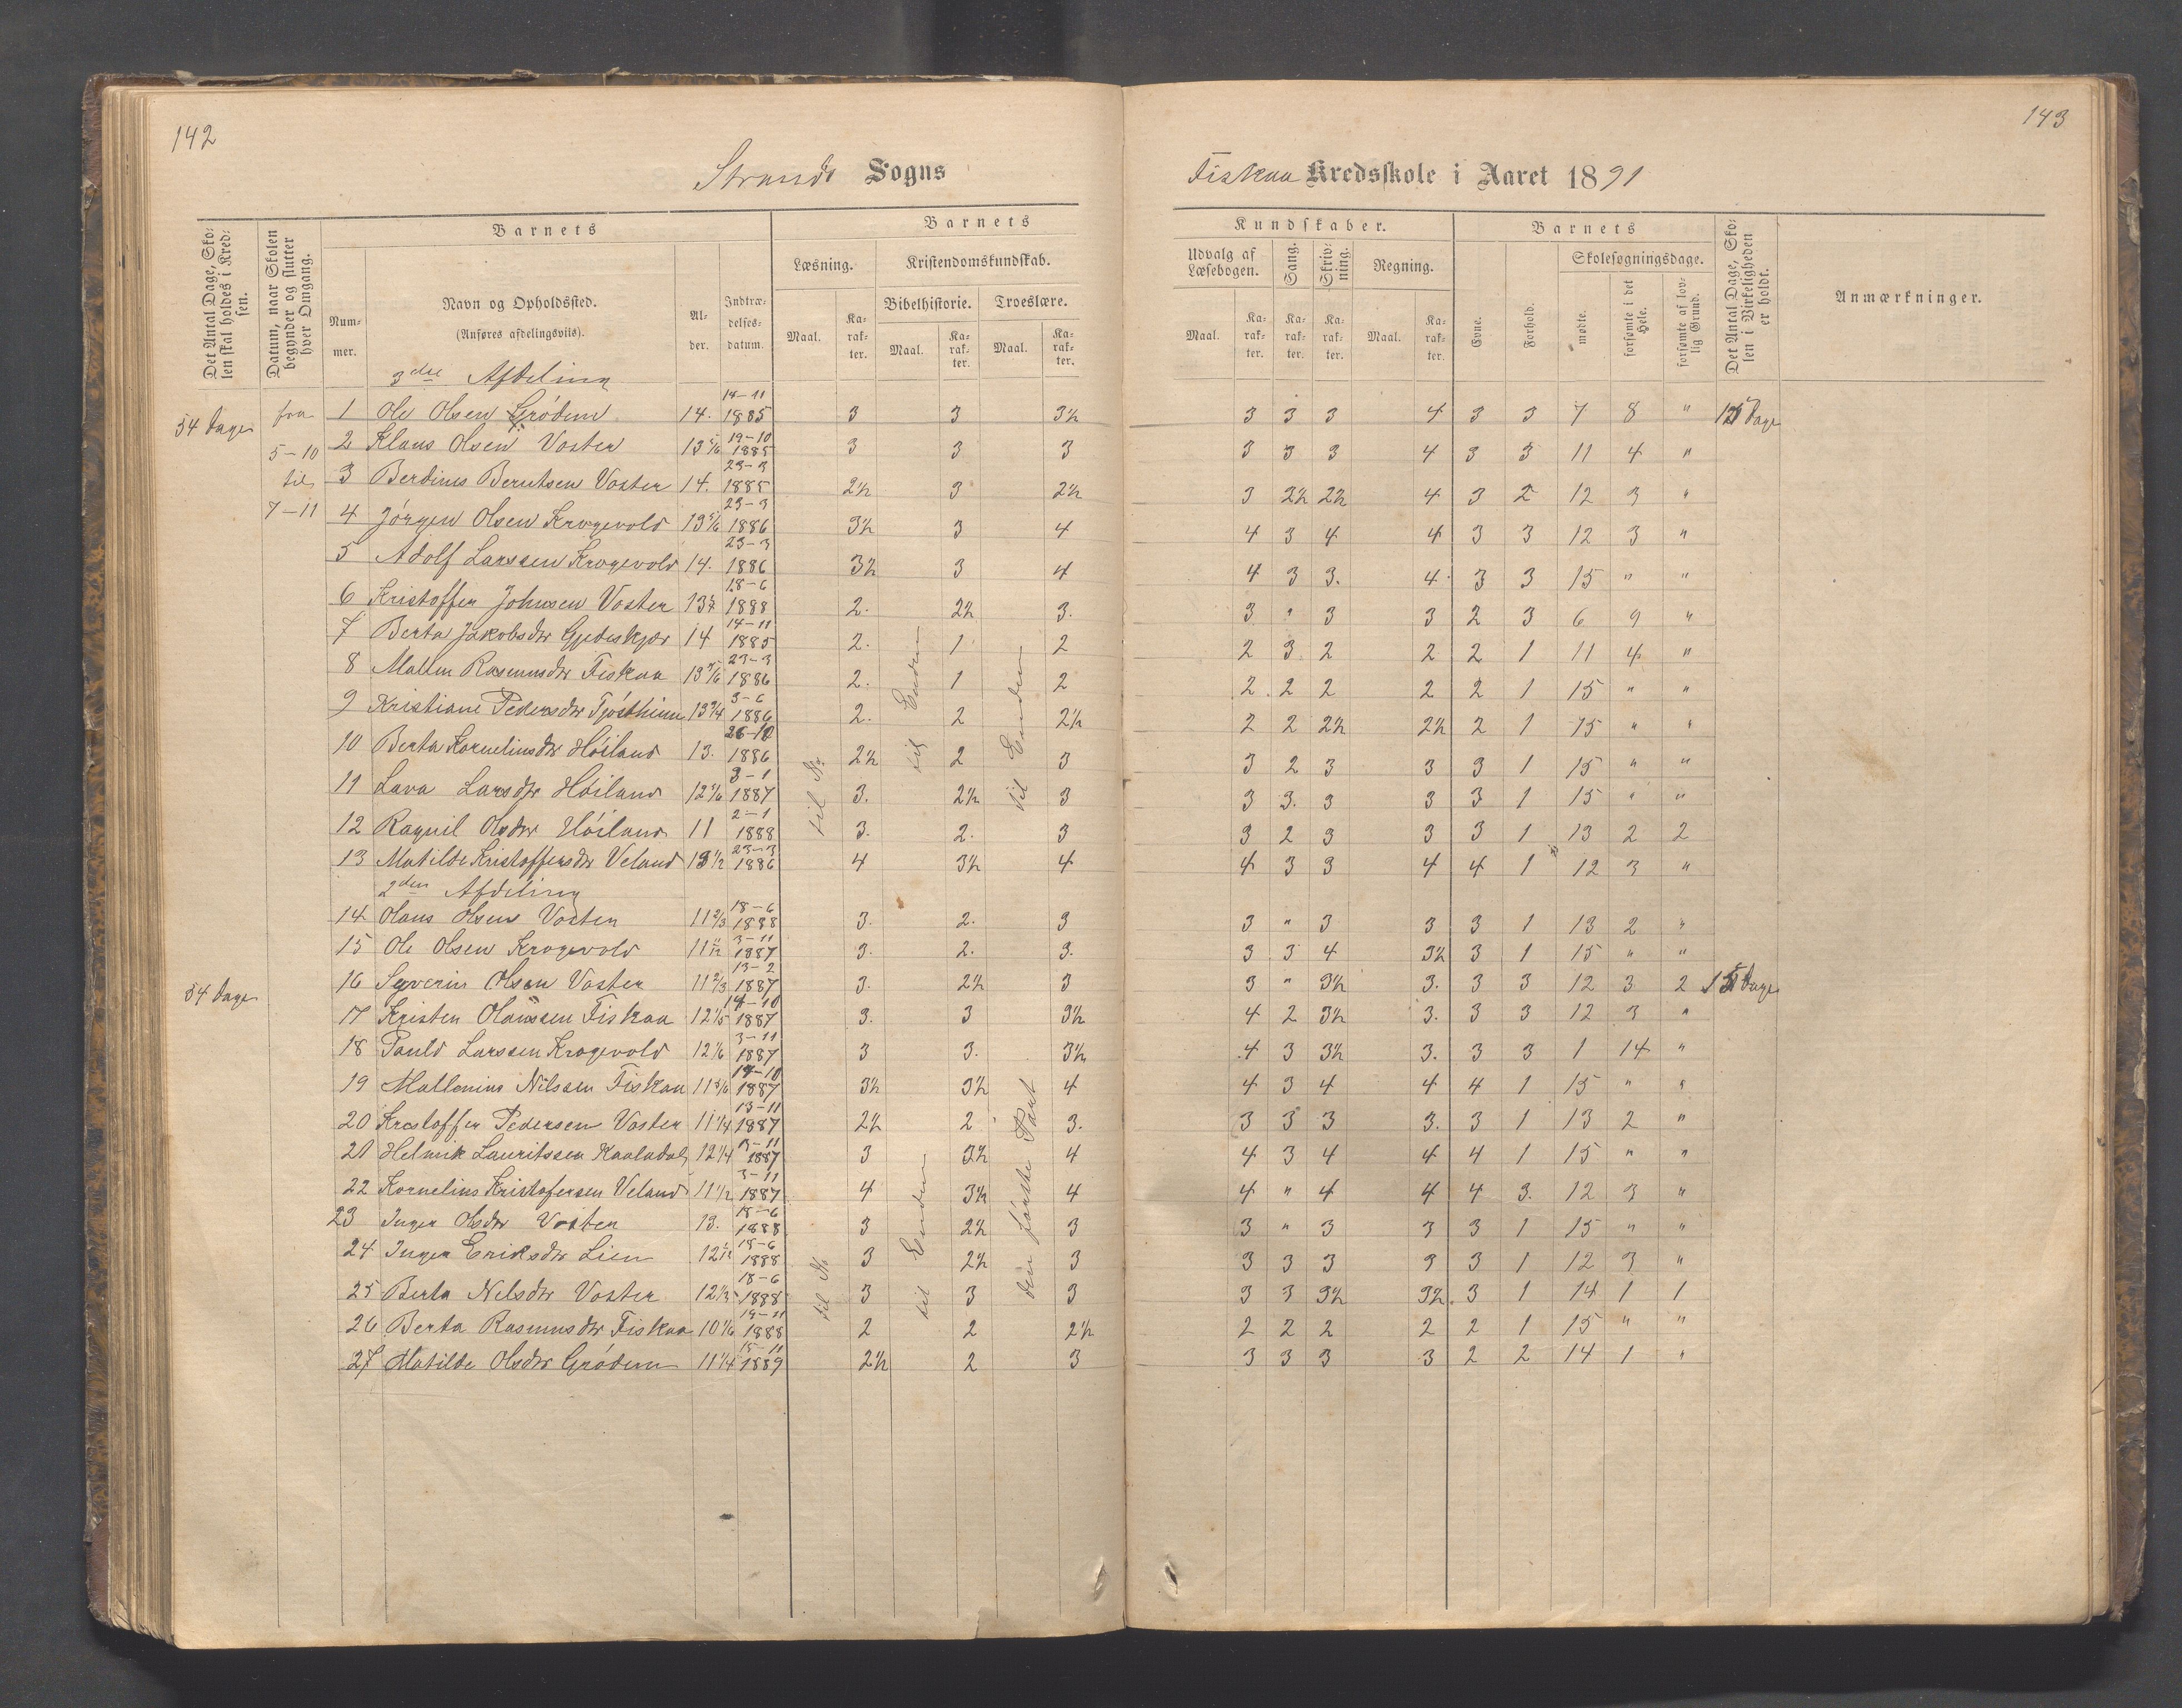 142
Strands Sogns
Det Antal Dage, Skolen skal holdes i Kredsen.
Datum, naar Skolen begynder og slutter hver Omgang.
Barnets
Nummer.
Navn og Opholdssted.
(Anføres afdelingsviis).
Alder.
Indtrædelsesdatum.
Barnets
Læsning.
Kristendomskundskab.
Bibelhistorie. Troeslære.
Maal. Karakter. Maal. Karakter. Maal. Karakter.
3die Afdeling
54 Dage
fra
5-10
til
7-11
1 Ole Olsen Grödem 14. 14-11 1885 3 3 3½
2 Klaus Olsen Voster 13 5/6 19-10 1885 3 3 3
3 Berdines Berntsen Voster 14. 23-3 1885 2½ 3 2½
4 Jörgen Olsen Krogevold 13 5/6 23-3 1886 3½ 3 4
5 Adolf Larssen Krogevold 14. 23-3 1886 3½ 3 4
6 Kristoffer Johnsen Voster 13½ 18-6 1888 2. 2½ 3.
7 Berta Jakobsdtr Gjedeskjær 14 14-11 1885 2. 1 2
8 Mallin Rasmusdtr Fiskaa 13 5/6 23-3 1886 2. 1 2
9 Kristiane Pedersdtr Tjöstheim 13 3/4 3-6 1886 2. 2 2½
10 Berta Kornelinsdtr Höiland 13. 26-10 1886 2½ 2 3
11 Lava Larsdtr Höiland 12 5/6 3-1 1887 3. 2½ 3
12 Ragnil Olsdtr Höiland 11 2-1 1888 3. 2. 3
13 Matilde Kristoffersdtr Veland 13½ 23-3 1886 4 3½ 4
til Nr
til Enden
til Enden
2den Afdeling
54 Dage
14 Olaus Olsen Voster 11 2/3 18-6 1888 3. 2. 3
15 Ole Olsen Krogevold 11 11/12 3-11 1887 3. 2. 3.
16 Syverin Olsen Voster 11 2/3 13-2 1887 3. 2½ 3
17 Kristen Olaussen Fiskaa 12 1/5 14-10 1887 3. 3 3½
18 Pauld Larssen Krogevold 12 1/6 3-11 1887 3 3. 3½
19 Mallenius Nilssen Fiskaa 11 5/6 14-10 1887 3½ 3½ 4
20 Krestoffer Pedersen Voster 11 1/4 13-11 1887 2½ 2 3.
21 Helmik Lauritssen Kaaladal 12 1/4 3-11 1887 3 3½ 4
22 Kornelius Kristofersen Veland 11 1/2 3-11 1887 4 3½ 4
23 Inger Olsdtr Voster 13. 18-6 1888 3 2½ 3
24 Inger Eriksdtr Lien 12 1/12 18-6 1888 3 2½ 3
25 Berta Nelsdtr Voster 12 1/3 18-6 1888 3 3 3
26 Berta Rasmusdtr Fiskaa 10 1/6 19-11 1888 2 2 2½
27 Matilde Olsdtr Grödem 11 1/4 15-11 1889 2½ 2 3
til Nr
til Enden
den förste Part
143
Fiskaa Kredsskole i Aaret 1891
Kundskaber.
Udvalg af Læsebogen. Sang. Skrivning. Regning.
Maal. Karakter. Karakter. Karakter. Maal. Karakter.
Barnets
Evne. Forhold.
Skolesøgningsdage.
mødte. forsømte i det Hele. forsømte af lovlig Grund.
Det Antal Dage, Skolen i Virkeligheden er holdt.
Anmærkninger.
3 3 3 4 3 3 7 8 " 15 Dage
3 3 3 4 3 3 11 4 "
3 2½ 2½ 4 3 2 12 3 "
4 3 4 4 3 3 12 3 "
4 3 3. 4. 3 3 15 " "
3 " 3 3 2 3 6 9 "
2 3 2 2 2 1 11 4 "
2. 2 2 2 2 1 15 " "
2 2 2½ 2½ 2 1 15 " "
3 2 3 3 3 1 15 " "
3 3. 3 3 3 1 15 " "
3 2 3 3 3 1 13 2 2
4 3 3 4 4 1 12 3 "
3 " 3 3 3 1 13 2 "
3 3 4 3½ 3 1 15 " "
3 " 3½ 3. 3 3 12 3 2 15 Dage
4 2 3½ 3. 3 3 12 3 "
4 3 3½ 3. 3 3 1 14 "
4 3 4 4 4 1 15 " "
3 3 3 3. 3 1 13 2 "
4 3 4 4 4 1 15 " "
4 " 4 4 4 3. 12 3 "
3 " 3 3 3 1 15 " "
3 3 3 3 3 1 12 3 "
3 3 3½ 3½. 3 1 14 1 1
2 2 2 2 2 1 15 " "
3 3 3 3 2 2 14 1 "